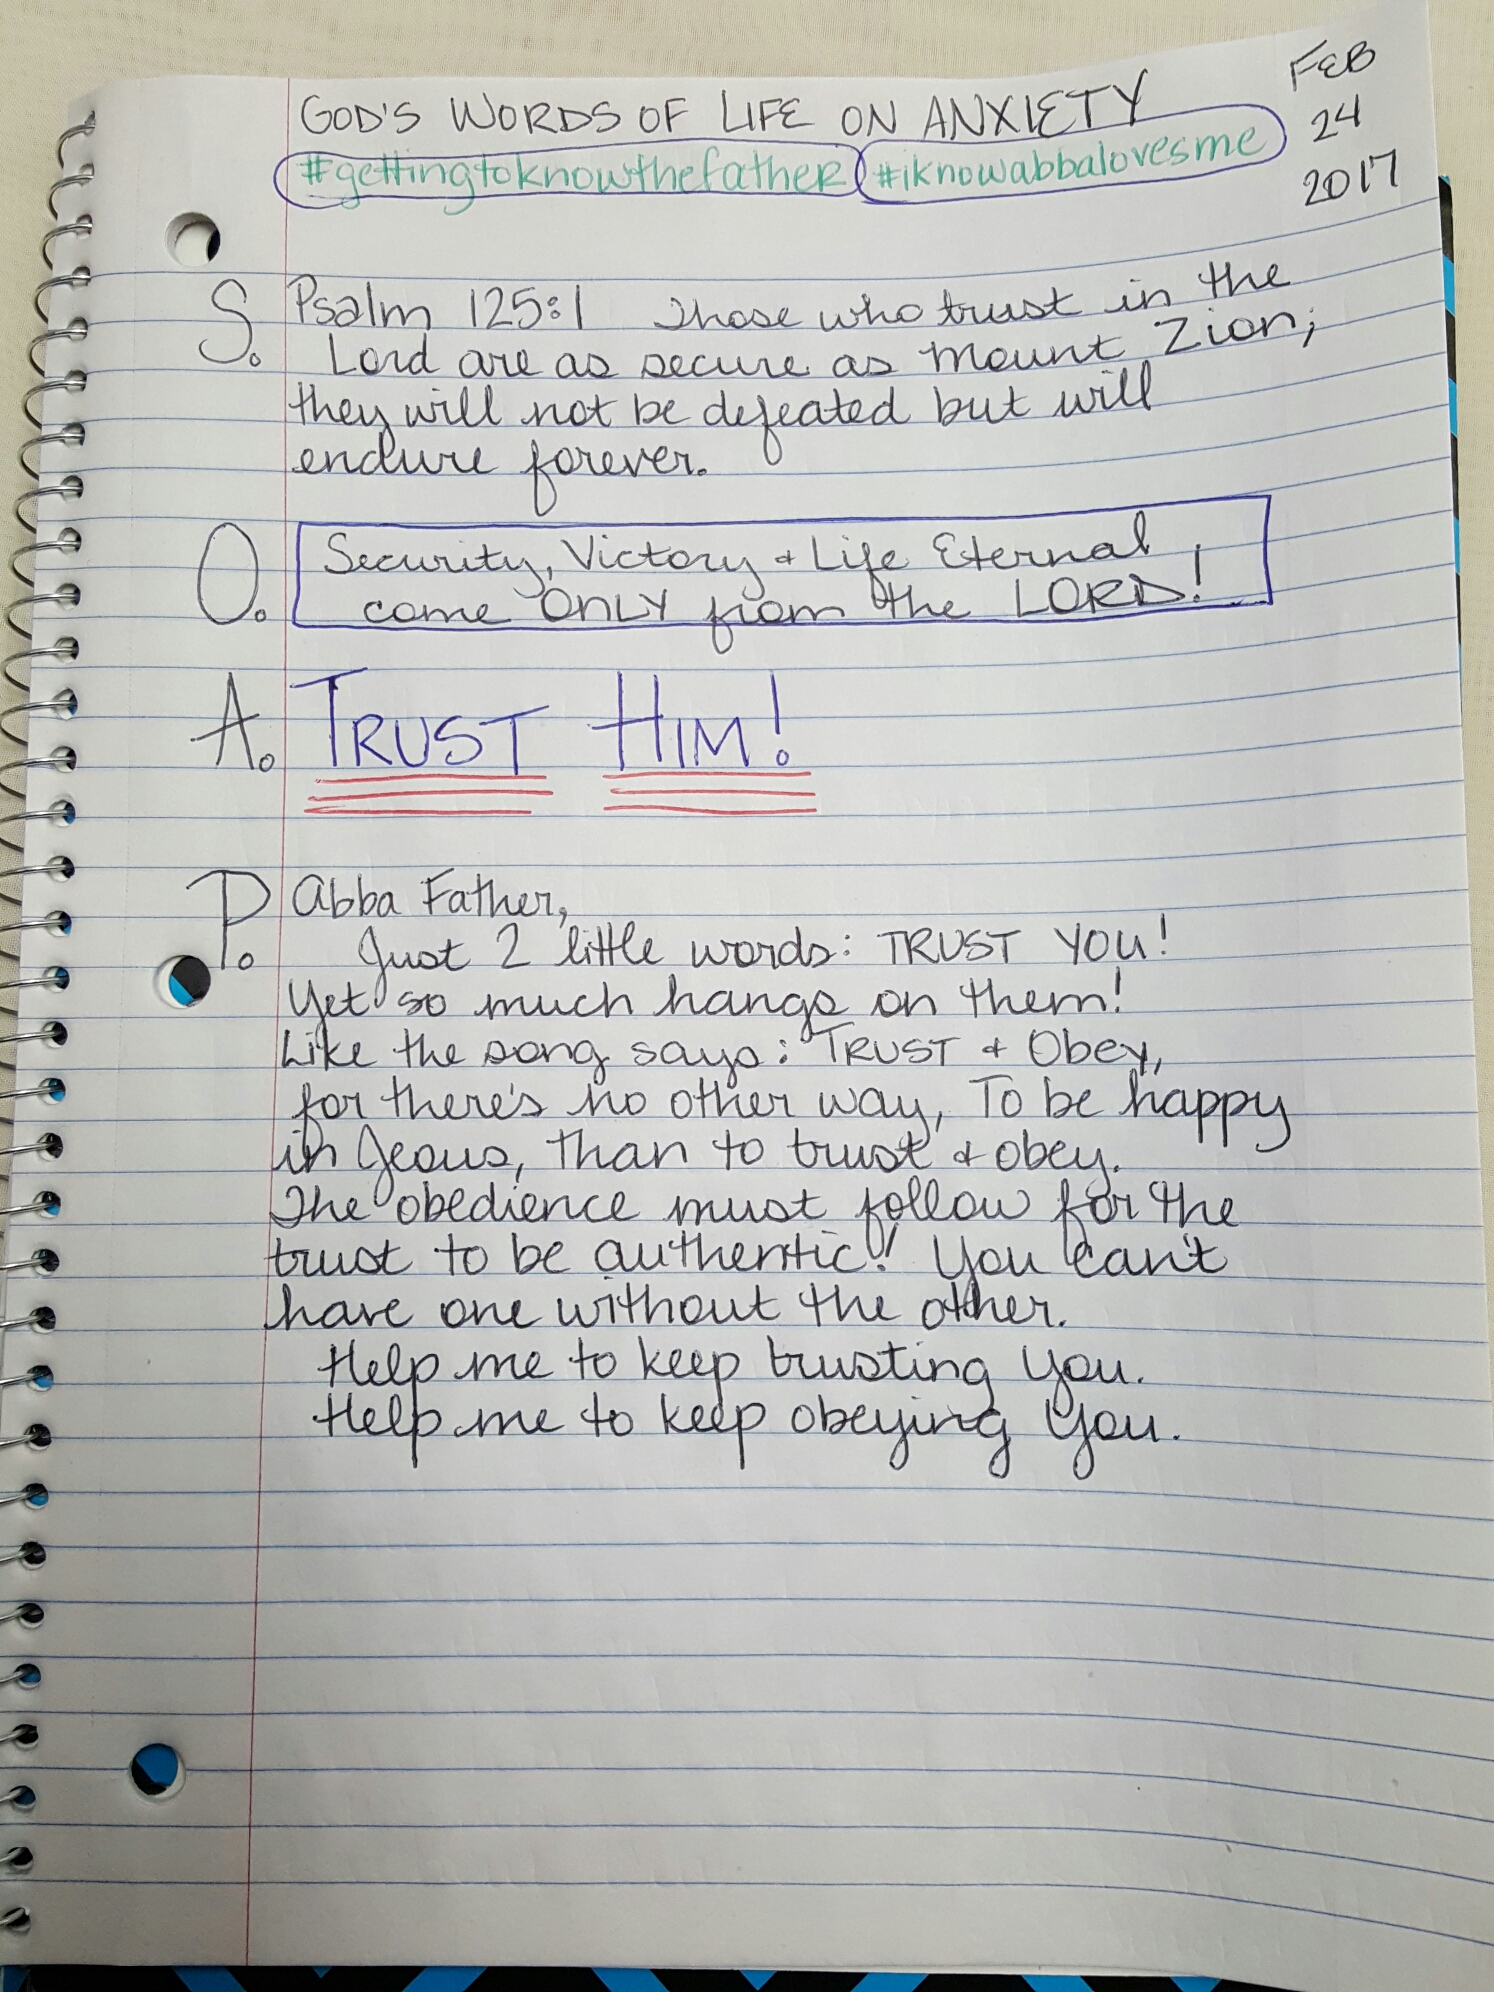 GOD'S WORDS OF LIFE ON ANXIETY
#gettingtoknowthefather #iknowabbalovesme
FEB
24
2017
S. Psalm 125:1 Those who trust in the
Lord are as secure as Mount Zion;
they will not be defeated but will
endure forever.
O. Security, Victory + Life Eternal
come ONLY from the LORD!
A. TRUST HIM!
P. Abba Father,
Just 2 little words: TRUST YOU!
Yet so much hangs on them!
Like the song says: TRUST + Obey,
for there's no other way, To be happy
in Jesus, Than to trust + obey.
The obedience must follow for the
trust to be authentic! You can't
have one without the other.
Help me to keep trusting You.
Help me to keep obeying You.